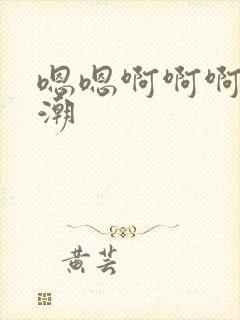 嗯嗯啊啊啊
潮
黄芸